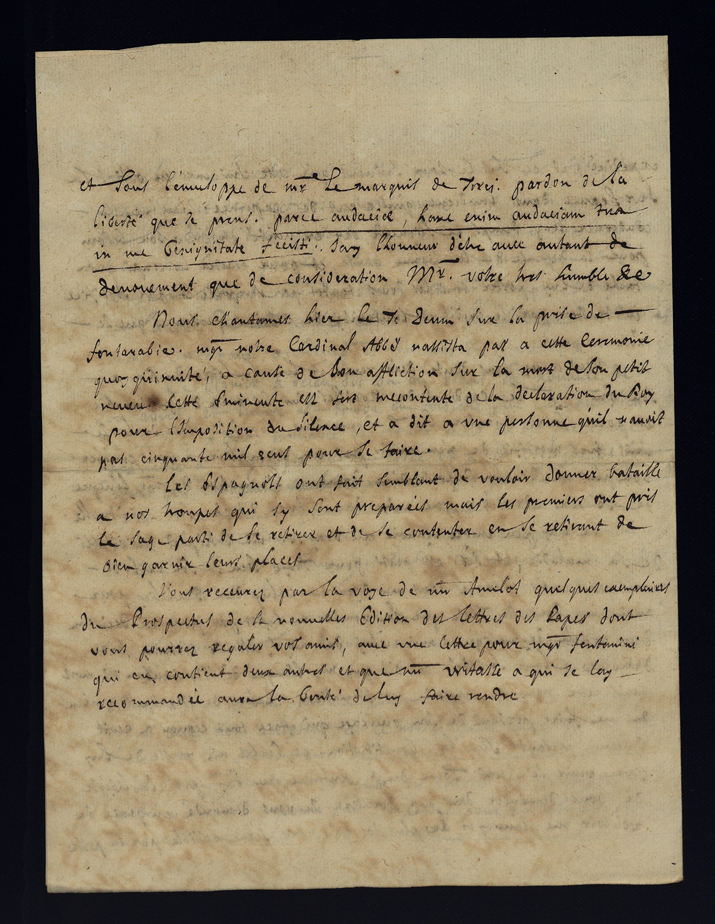 et sous l'enveloppe de mr Le marquis de Torci. pardon de la
liberté que je prens. parce audaciæ, hanc enim audaciam tua
in me benignitate fecisti. J'ay l'honneur d'être avec autant de
devouement que de consideration Mr. votre tres humble &c
Nous chantames hier le Te Deum sur la prise de
fontarabie. mgr notre Cardinal Abbé n'assista pas a cette Ceremonie
quoyqu'invité, a cause de son affliction sur la mort de son petit
neveu. Cette Eminence est tres mecontente de la declaration du Roy
pour l'Imposition du silence, et a dit a une personne qu'il n'avoit
pas cinquante mil ecus pour se taire.
Les Espagnols ont fait semblant de vouloir donner bataille
a nos troupes qui s'y sont preparées mais les premiers ont pris
le sage parti de se retirer et de se contenter en se retirant de
bien garnir leurs places
Vous recevrez par la voye de mr Amelot quelques exemplaires
du Prospectus de la nouvelles Edition des lettres des Papes dont
vous pourrez regaler vos amis, avec une lettre pour mgr fontanini
qui en contient deux autres et que mr a qui je l'ay
recommandée aura la bonté de luy faire rendre